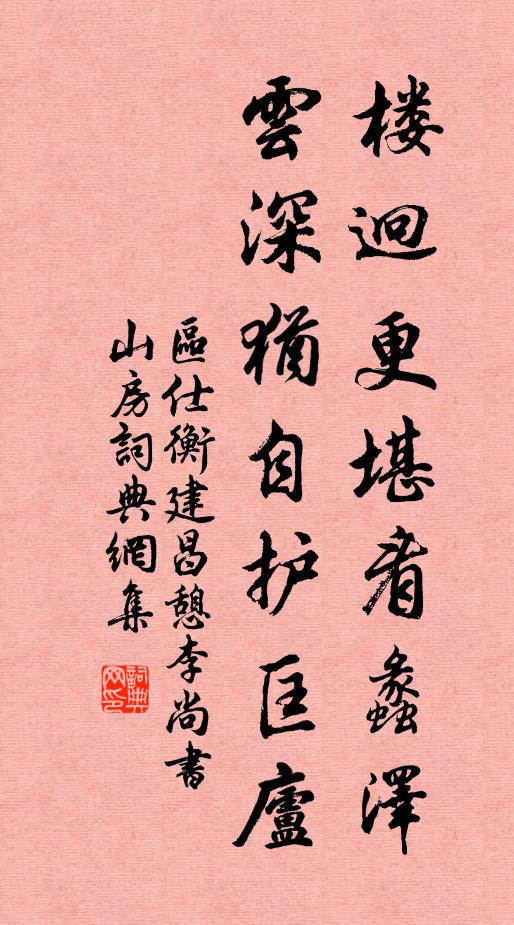 楼迥更堪看蠡澤
雲深猶自护匡廬
區仕衡建昌憩李尚書
山房詞典網集
詞典网印